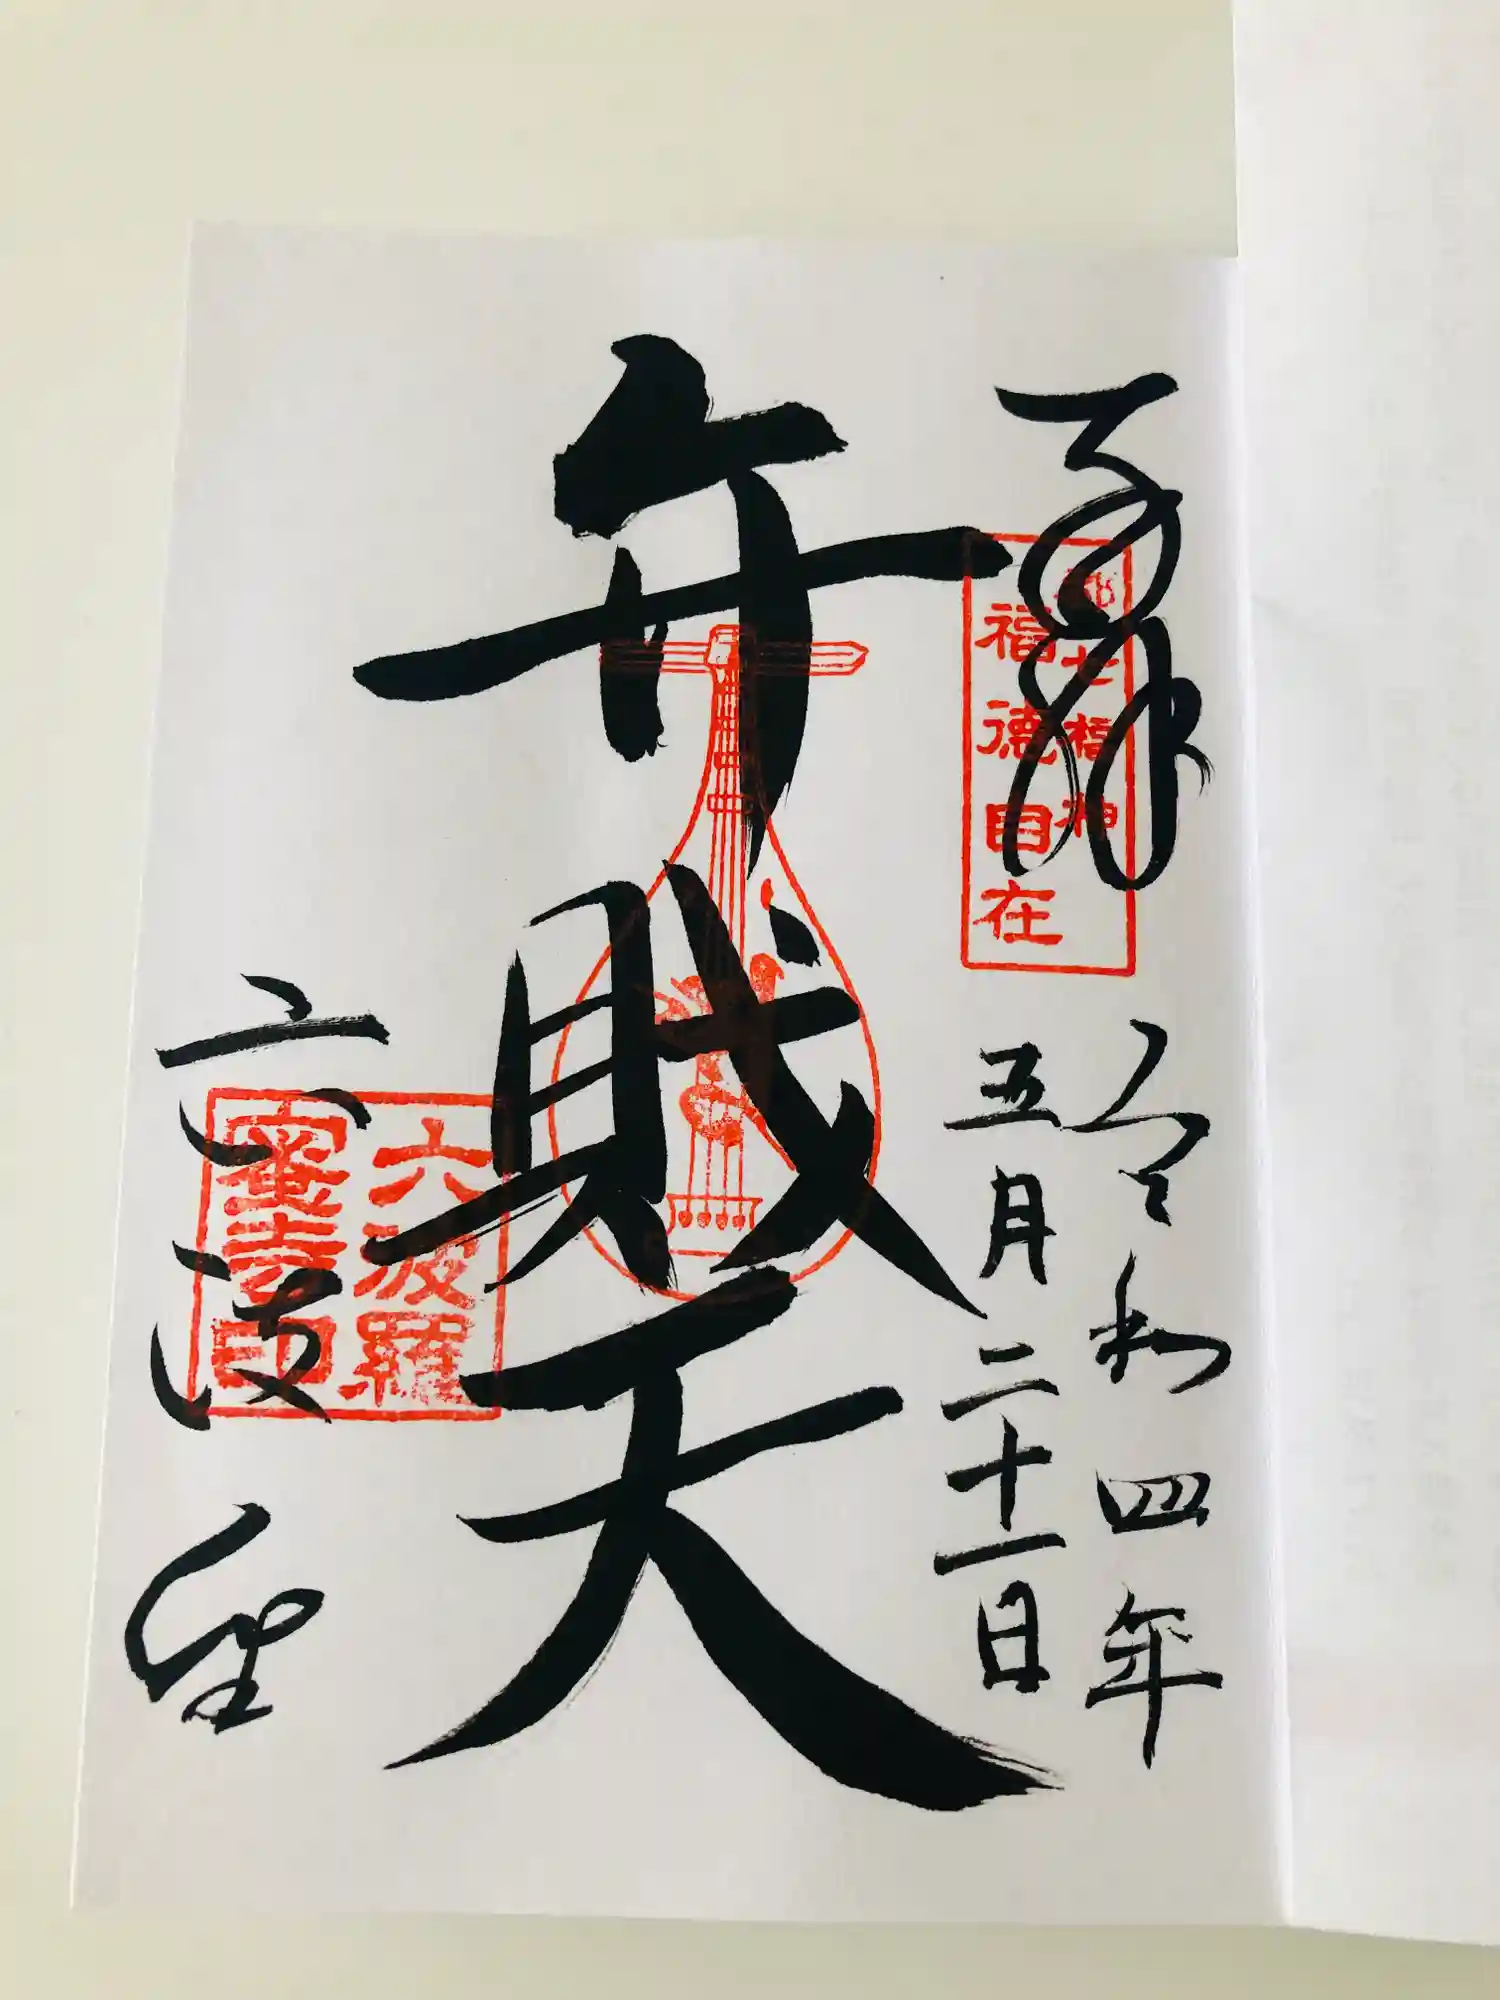 奉拝
都七福神
福徳自在
令和四年
五月二十一日
弁財天
六波羅
蜜寺印
六波羅